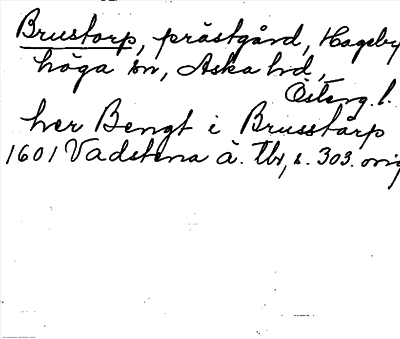 Brustorp, prästgård, Hagebyhöga sn, Aska hd,
Österg. l.
her Bengt i Brusstårp
1601 Vadstena ä. Tb, s. 303. orig